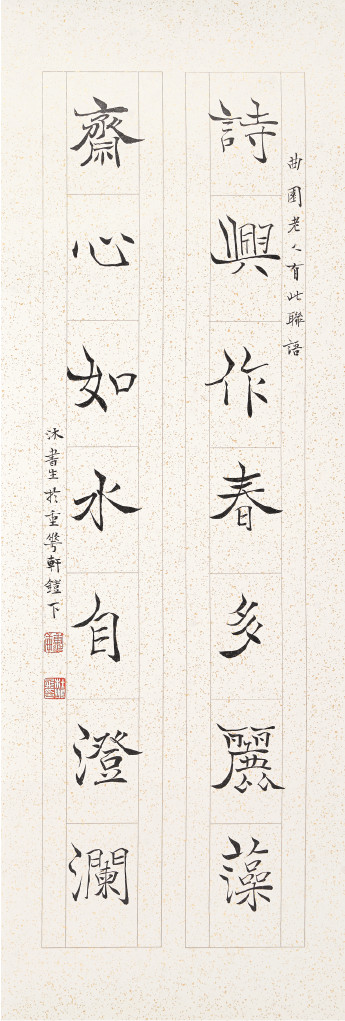 曲園老人有此聯語
詩興作春多麗藻
齋心如水自澄瀾
沐書生於重簷軒鐙下